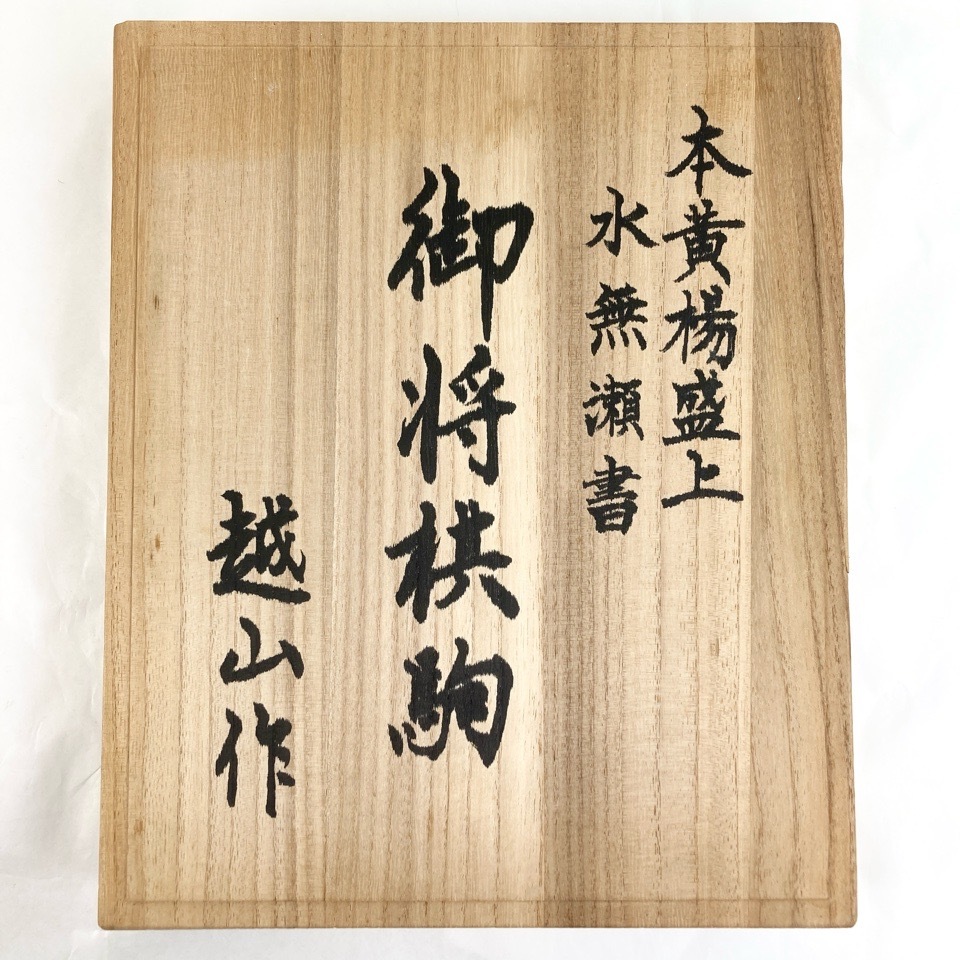 本黄楊盛上
水無瀬書
御将棋駒
越山作